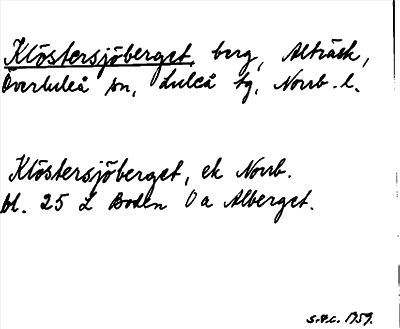 Klöstersjöberget, berg, Alträsk,
Överluleå sn, Luleå tg, Norrb. l.
Klöstersjöberget, ek Norrb.
bl. 25 L Boden Oa Alberget.
S.P.C. 1959.